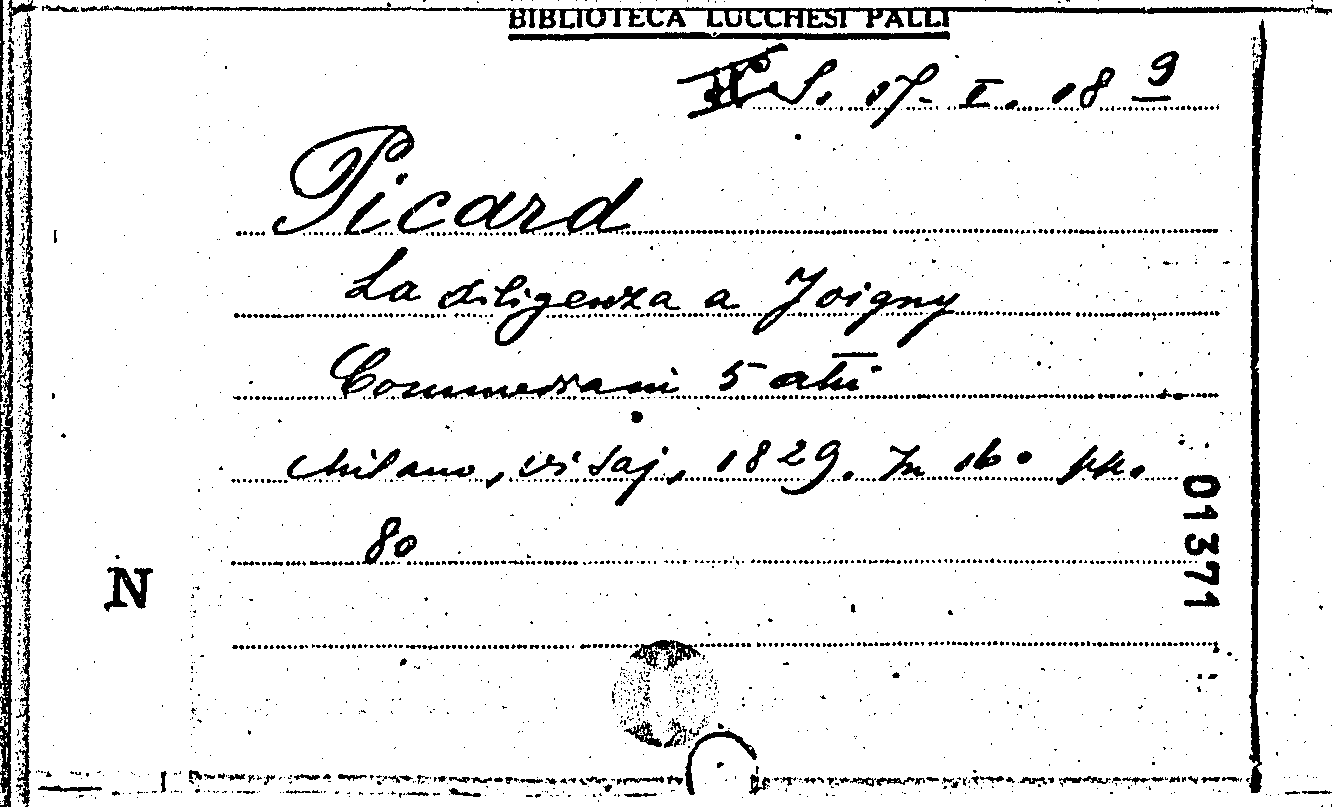 BIBLIOTECA LUCCHESI PALLI
S. 17-I. 18 9
Picard
La diligenza a Joigny
Commedia in 5 atti
Milano, Visaj, 1829. In 16º pp.
80
N
01371